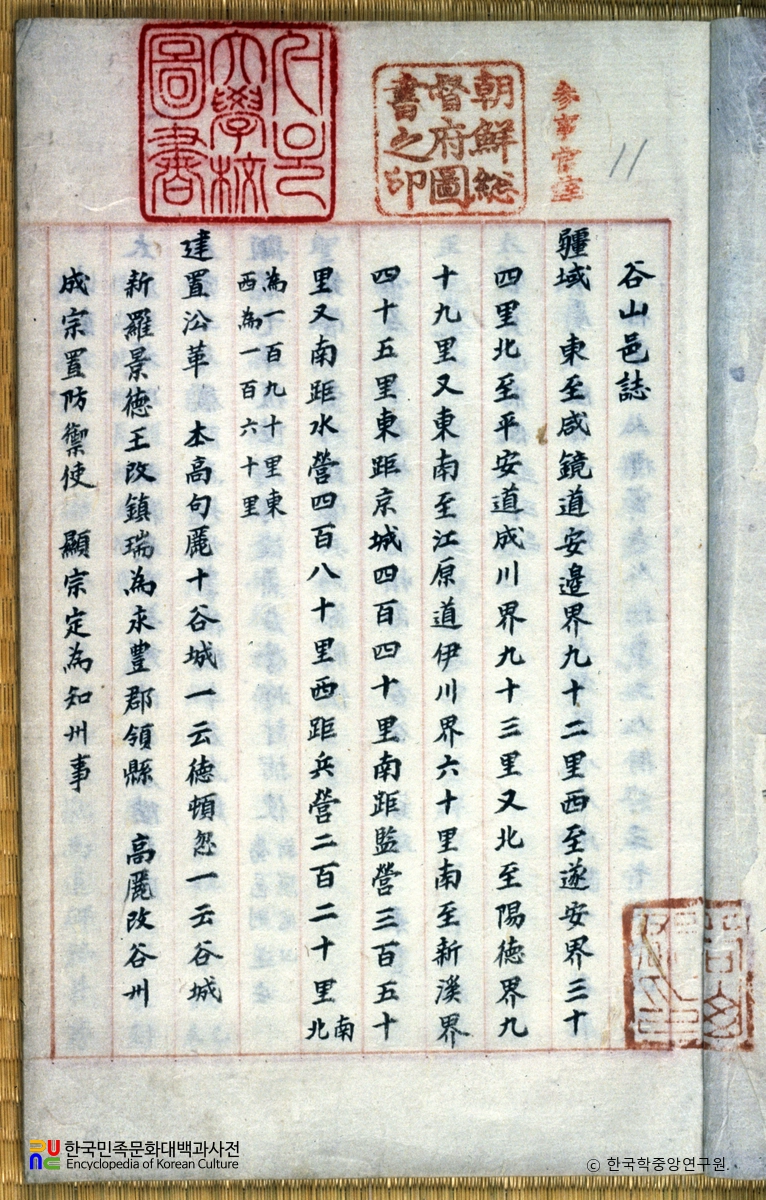 서울大學校圖書
朝鮮総督府圖書之印
参事官室
11
谷山邑誌
疆域 東至咸鏡道安邉界九十二里西至遂安界三十
四里北至平安道成川界九十三里又北至陽徳界九
十九里又東南至江原道伊川界六十里南至新溪界
四十五里東距京城四百四十里南距監營三百五十
里又南距水營四百八十里西距兵營二百二十里南北
為一百九十里東
西為一百六十里
建置沿革 本高句麗十谷城一云徳頓忽一云谷城
新羅景徳王改鎮瑞為永豊郡領縣 高麗改谷州
成宗置防禦使 顯宗定為知州事
한국민족문화대백과사전
Encyclopedia of Korean Culture
© 한국학중앙연구원